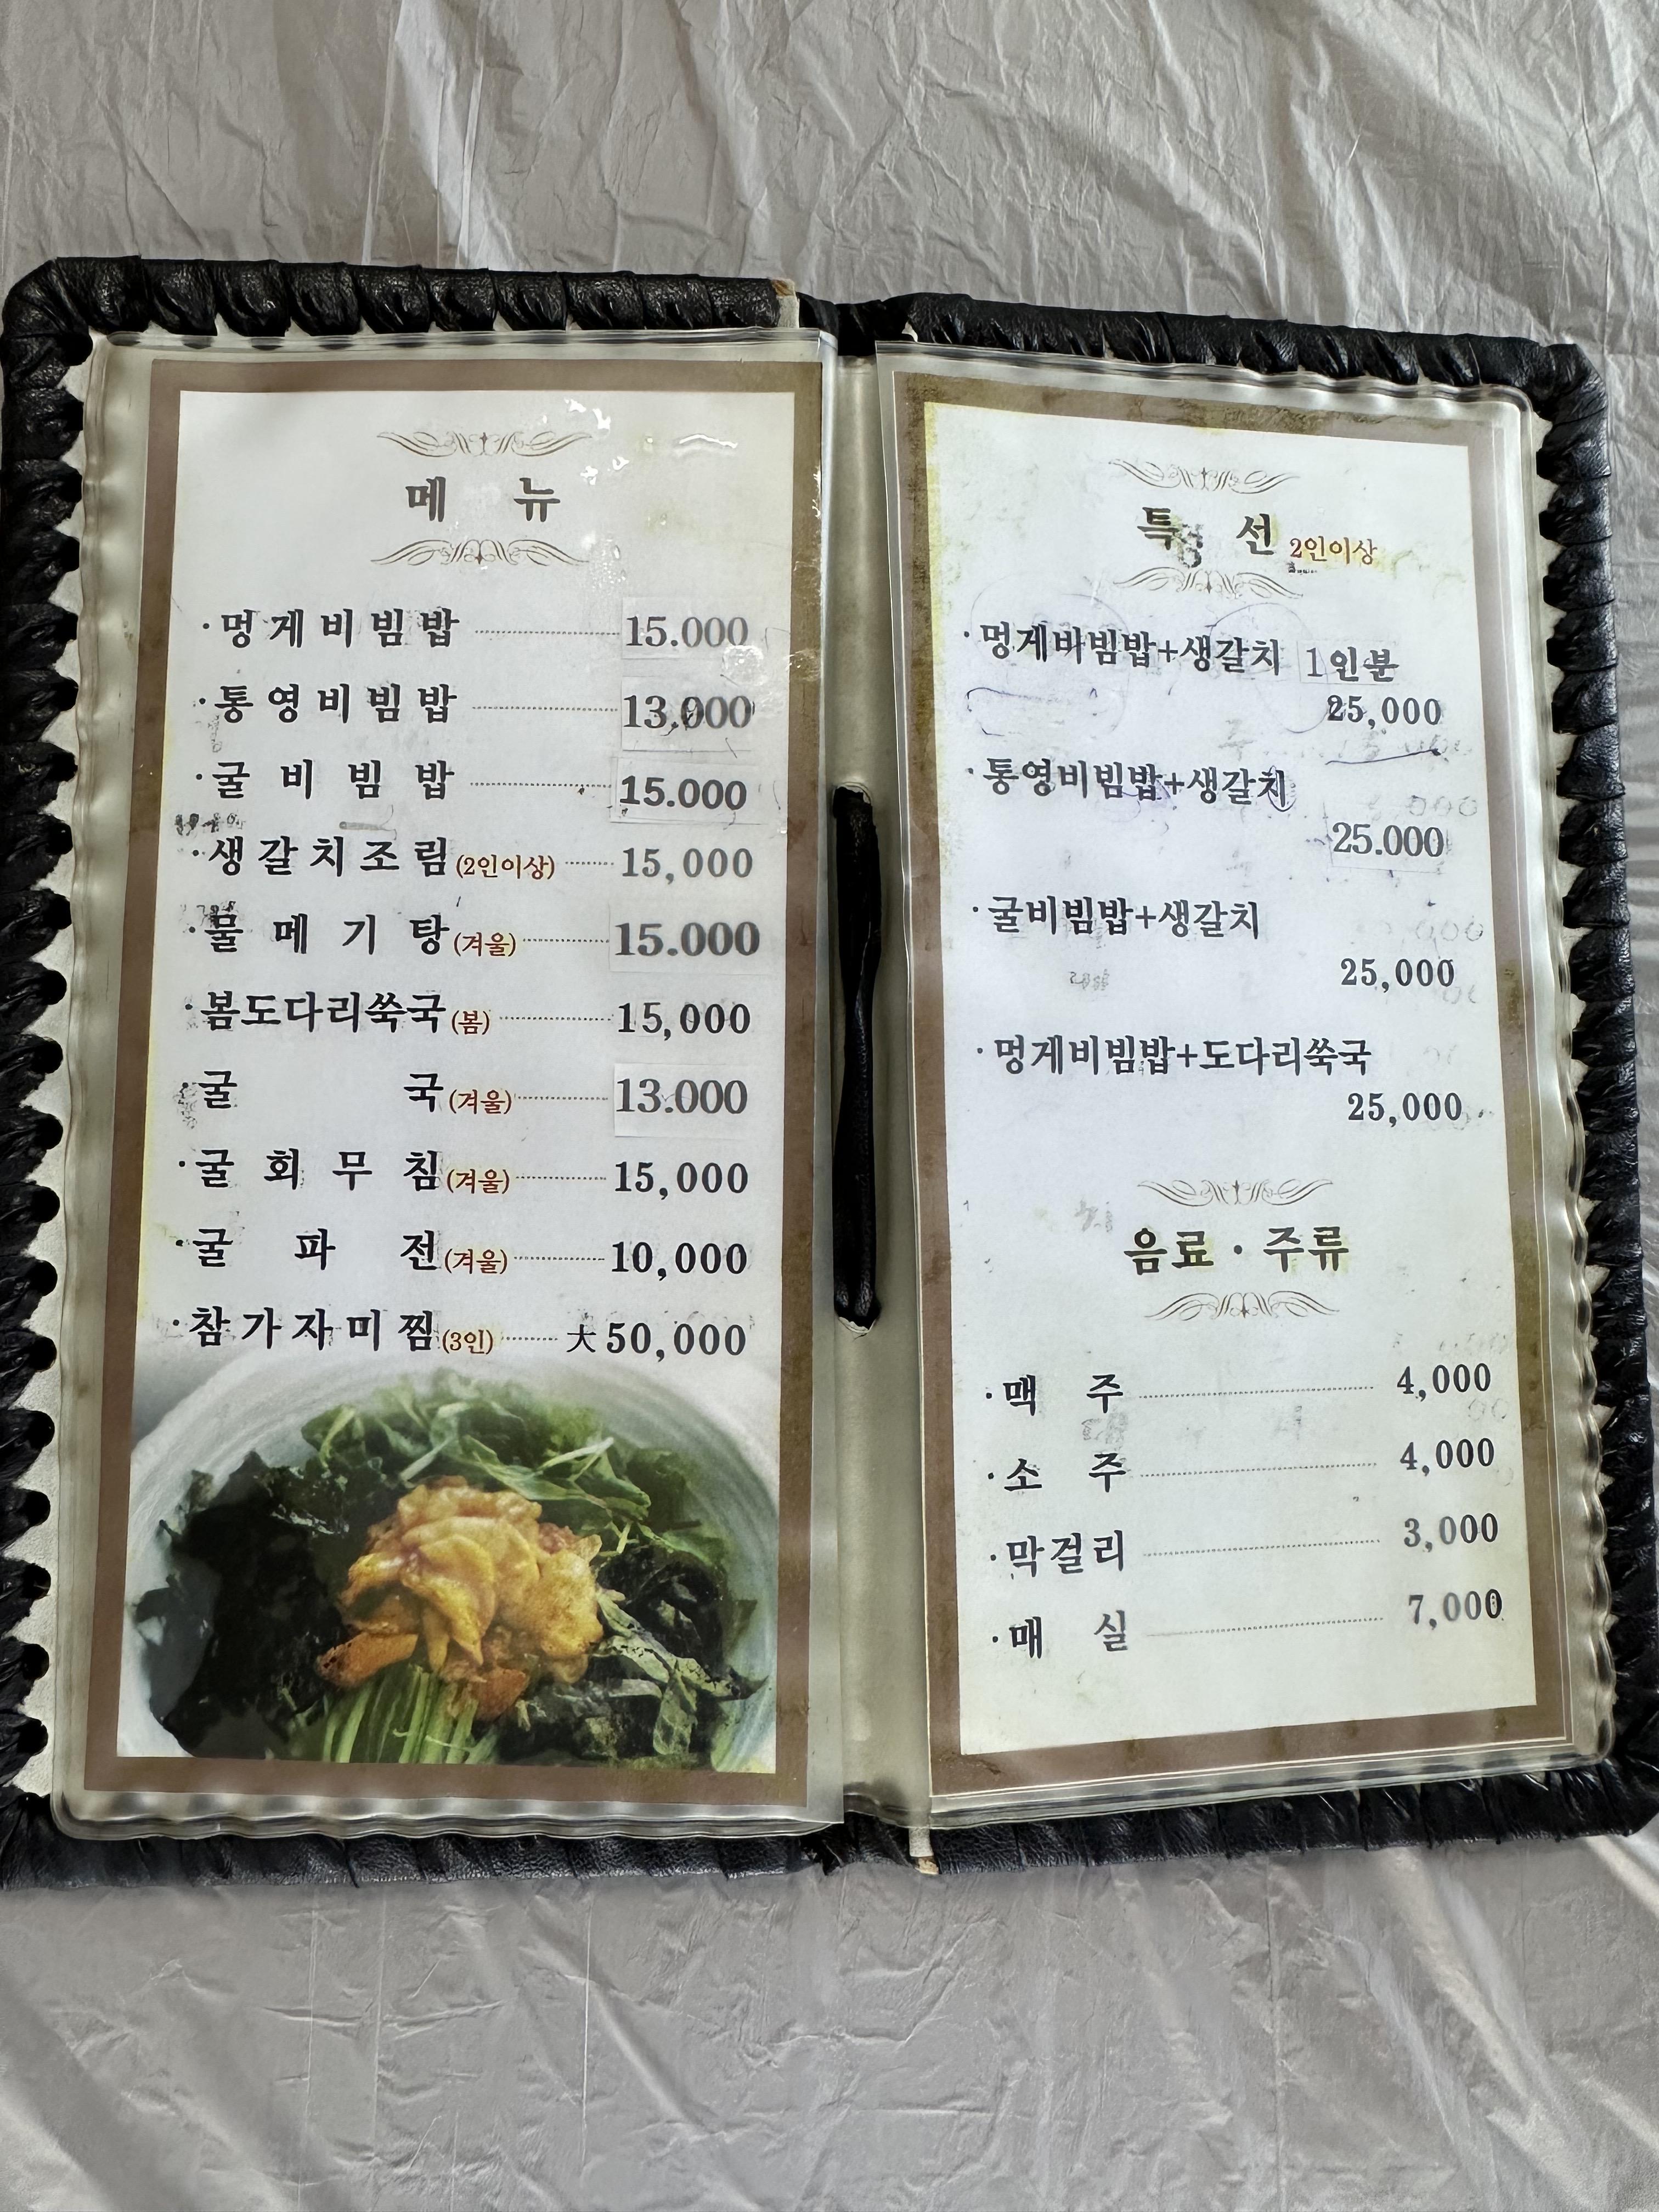 메 뉴
·멍게비빔밥 15.000
·통영비빔밥 13.000
·굴비빔밥 15.000
·생갈치조림(2인이상) 15,000
·물메기탕(겨울) 15.000
·봄도다리쑥국(봄) 15,000
·굴국(겨울) 13.000
·굴회무침(겨울) 15,000
·굴파전(겨울) 10,000
·참가자미찜(3인) 大 50,000
특 선 2인이상
·멍게비빔밥+생갈치 1인분
25,000
·통영비빔밥+생갈치
25.000
·굴비빔밥+생갈치
25,000
·멍게비빔밥+도다리쑥국
25,000
음료·주류
·맥 주 4,000
·소 주 4,000
·막걸리 3,000
·매 실 7,000